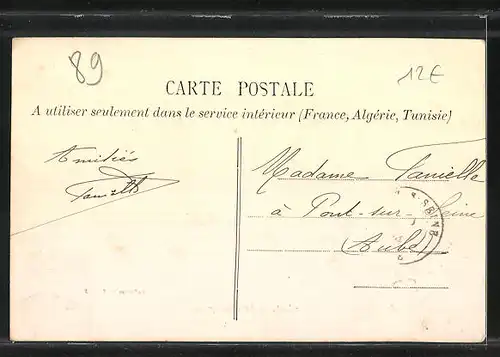 89
12€
CARTE POSTALE
A utiliser seulement dans le service intérieur (France, Algérie, Tunisie)
Amitiés
Madame
à Pont-sur-Seine
(Aube)